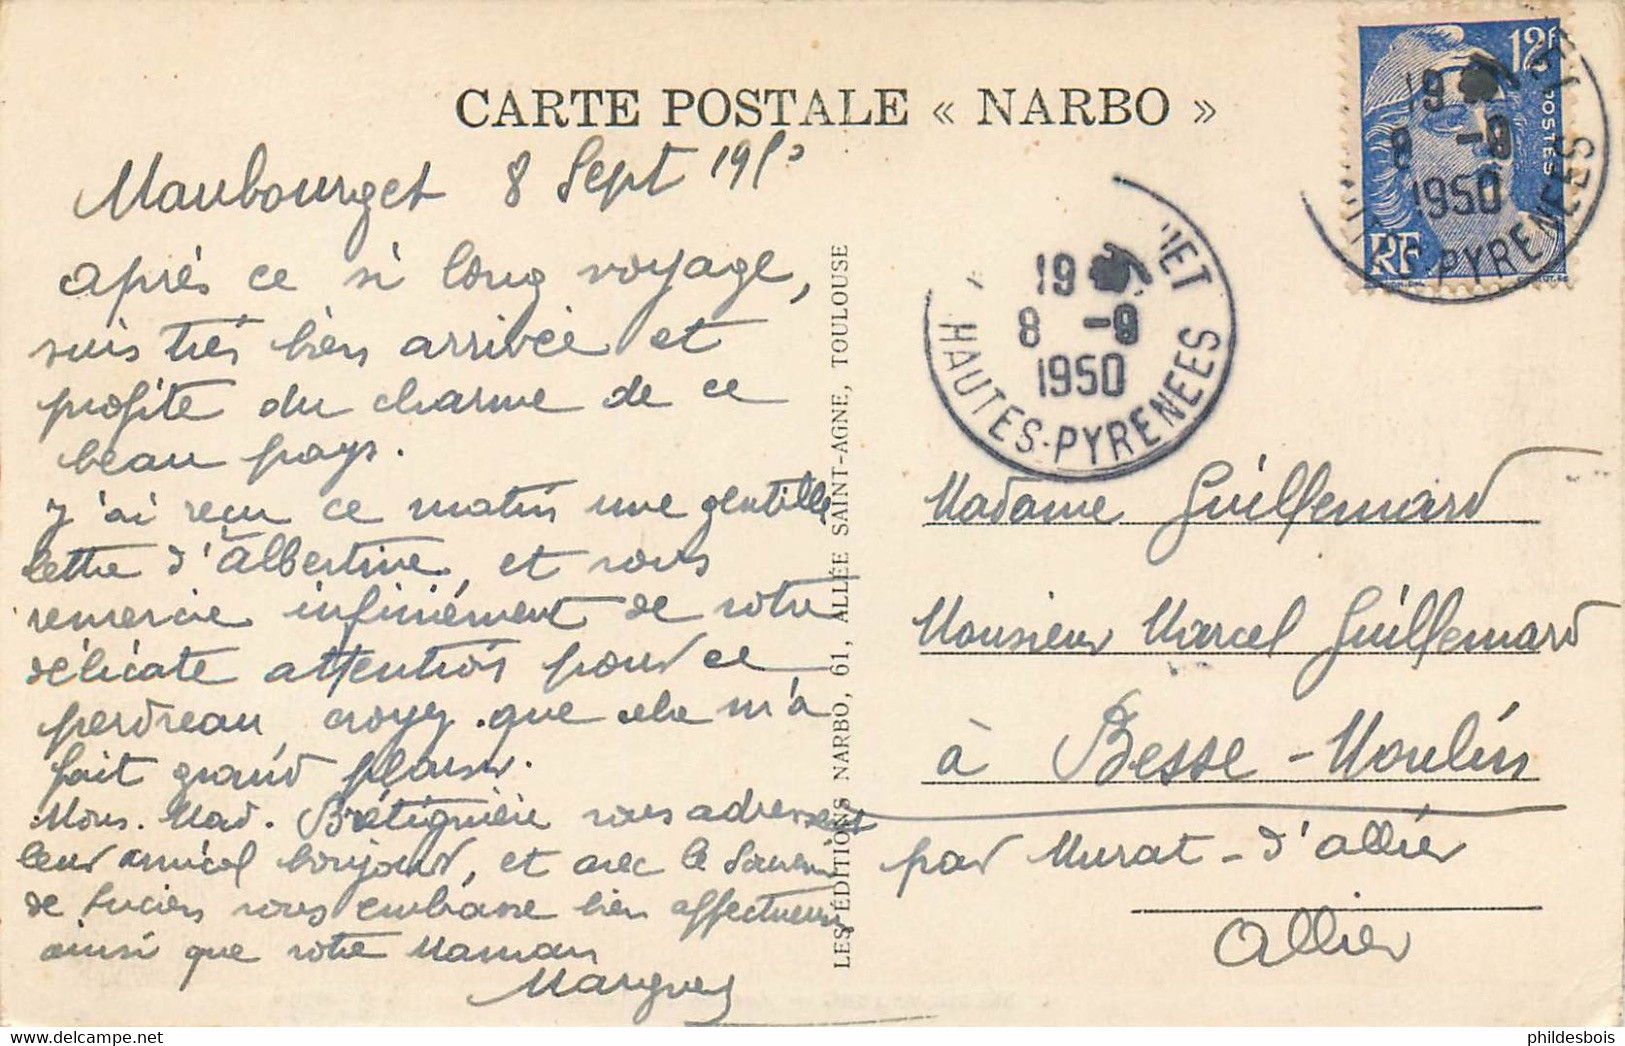 CARTE POSTALE « NARBO »
Maubourget 8 Sept 1950
après ce si long voyage,
suis très bien arrivée et
profite du charme de ce
beau pays.
J'ai reçu ce matin une gentille
lettre d'Albertine, et vous
remercie infiniément de votre
délicate attention pour ce
perdreau croyez que cela m'a
fait grand plaisir.
Mons. Mad. Brétignière vous adressent
leur amical bonjour, et avec le Souvenir
de Lucien vous embrasse bien affectueus
ainsi que votre Maman
LES ÉDITIONS NARBO, 61, ALLÉE SAINT-AGNE, TOULOUSE
12F
POSTES
RF
19
8 -9
1950
PYRENEES
ET
19
8 -9
1950
HAUTES-PYRENEES
Madame Guillemard
Monsieur Marcel Guillemard
à Besse-Moulin
par Murat-d'allier
Allier
phildesbois
WWW.DELCAMPE.NET